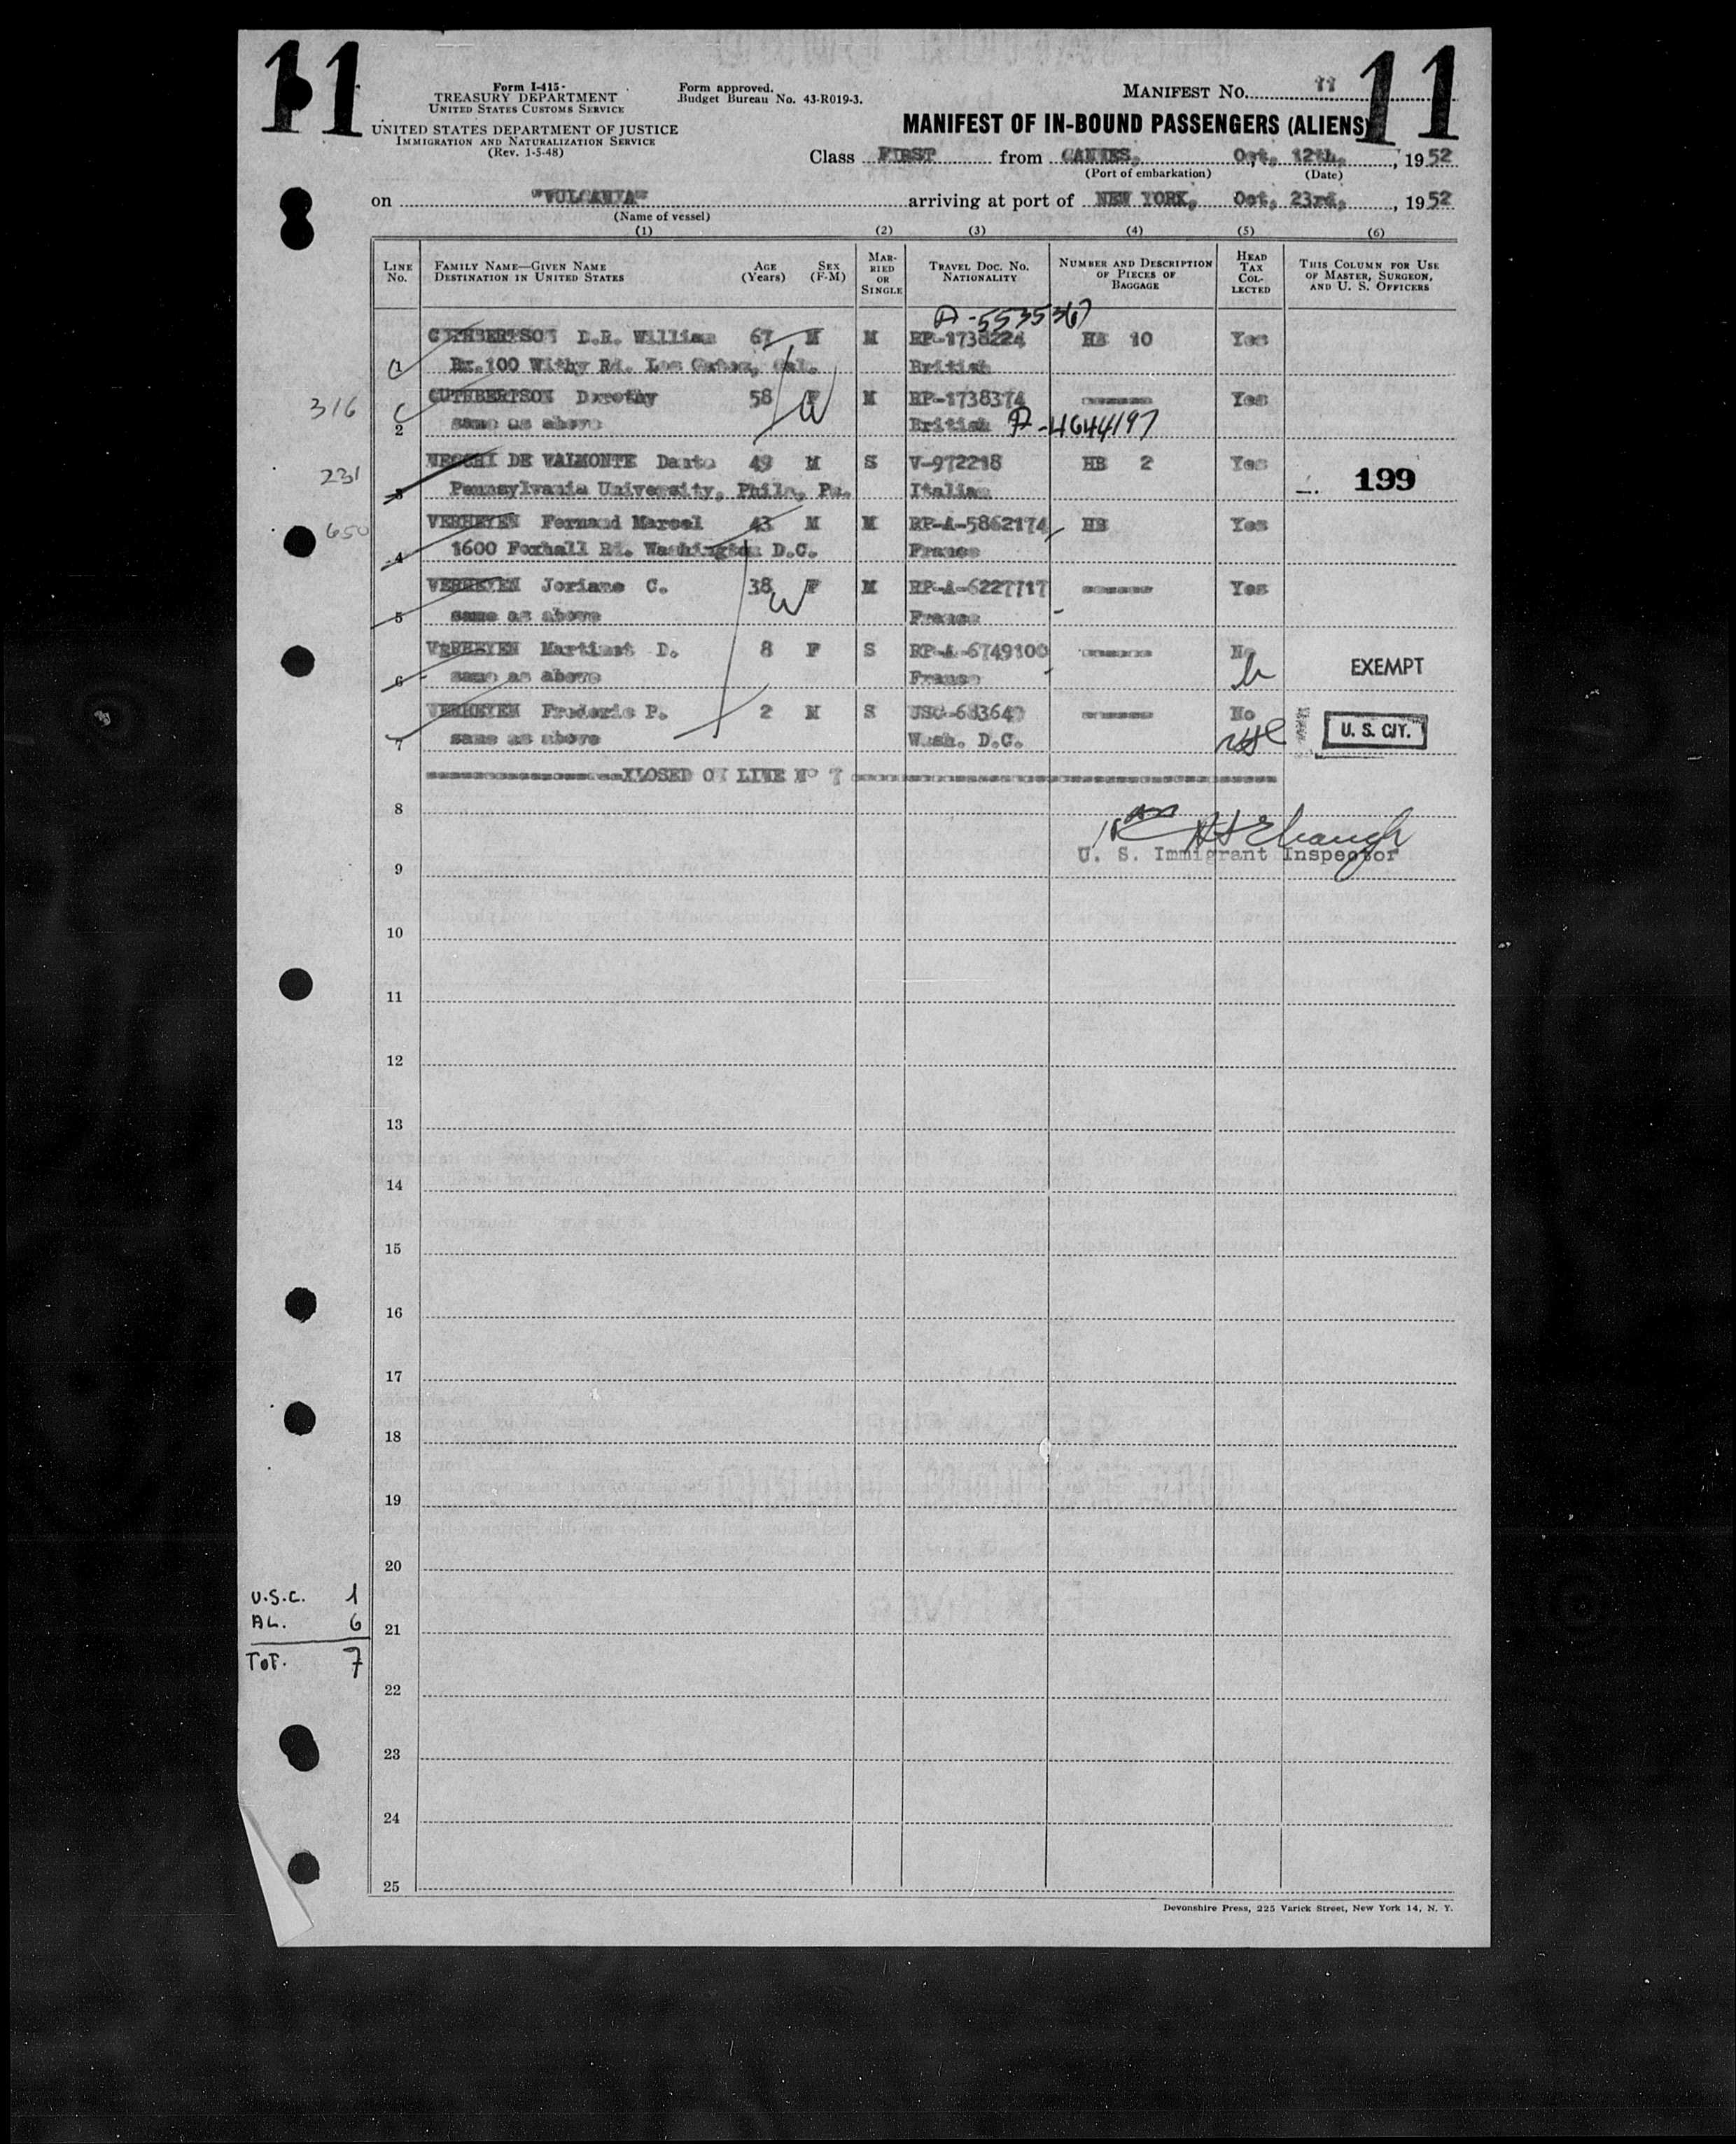 11
11
Form I-415
TREASURY DEPARTMENT
UNITED STATES CUSTOMS SERVICE
UNITED STATES DEPARTMENT OF JUSTICE
IMMIGRATION AND NATURALIZATION SERVICE
(Rev. 1-5-48)
Form approved.
Budget Bureau No. 43-R019-3.
MANIFEST No. 11
MANIFEST OF IN-BOUND PASSENGERS (ALIENS)
Class FIRST from CANNES, Oct. 12th, 1952
(Port of embarkation) (Date)
on "VULCANIA" arriving at port of NEW YORK, Oct. 23rd, 1952
(Name of vessel)
(1) (2) (3) (4) (5) (6)
LINE No. FAMILY NAME—GIVEN NAME DESTINATION IN UNITED STATES AGE (Years) SEX (F-M) MARRIED OR SINGLE TRAVEL DOC. NO. NATIONALITY NUMBER AND DESCRIPTION OF PIECES OF BAGGAGE HEAD TAX COLLECTED THIS COLUMN FOR USE OF MASTER, SURGEON, AND U. S. OFFICERS
A-5535367
CUTHBERTSON D.R. William 67 M M RP-1738224 HB 10 Yes
1 Bx.100 Withy Rd. Los Gatos, Cal. British
316 CUTHBERTSON Dorothy 58 F M RP-1738374 Yes
2 same as above British A-4644197
231 VECCHI DE VALMONTE Dante 49 M S V-972218 HB 2 Yes 199
3 Pennsylvania University, Phila, Pa. Italian
650 VERHEYEN Fernand Marcel 43 M M RP-A-5862174 HB Yes
4 1600 Foxhall Rd. Washington D.C. France
VERHEYEN Joriane C. 38 F M RP-A-6227717 Yes
5 same as above France
VERHEYEN Martinet D. 8 F S RP-A-6749100 No EXEMPT
6 same as above France
VERHEYEN Frederic P. 2 M S USC-683640 No U. S. CIT.
7 same as above Wash. D.C.
XLOSED ON LINE Nº 7
8
U. S. Immigrant Inspector
9
10
11
12
13
14
15
16
17
18
19
20
U.S.C. 1
AL. 6
21
TOT. 7
22
23
24
25
Devonshire Press, 225 Varick Street, New York 14, N. Y.